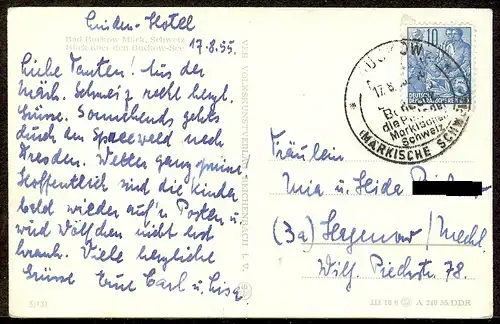 Linden-Hotel
Bad Buckow Märk. Schweiz
Blick über den Buckow-See
17.8.55.
Liebe Tanten! Aus der
Märk. Schweiz recht herzl.
Grüsse. Sonnabends gehts
durch den Spreewald nach
Dresden. Wetter ganz prima.
Hoffentlich sind die Kinder
bald wieder auf'n Posten u.
wird Wölfchen nicht erst
krank. Viele herzliche
Grüsse Eure Carl u. Lisa
5/131
VEB VOLKSKUNSTVERLAG REICHENBACH i. V.
BUCKOW
17.8.
die
Märkischen
Schweiz
(MÄRKISCHE SCHWEIZ)
10
DEUTSCHE
DEMOKRATISCHE REPUBLIK
Fräulein
Mia u. Heida
(3a) Hagenow/Meckl
Wilh. Pieckstr. 78.
III 18 6 A 240 55 DDR